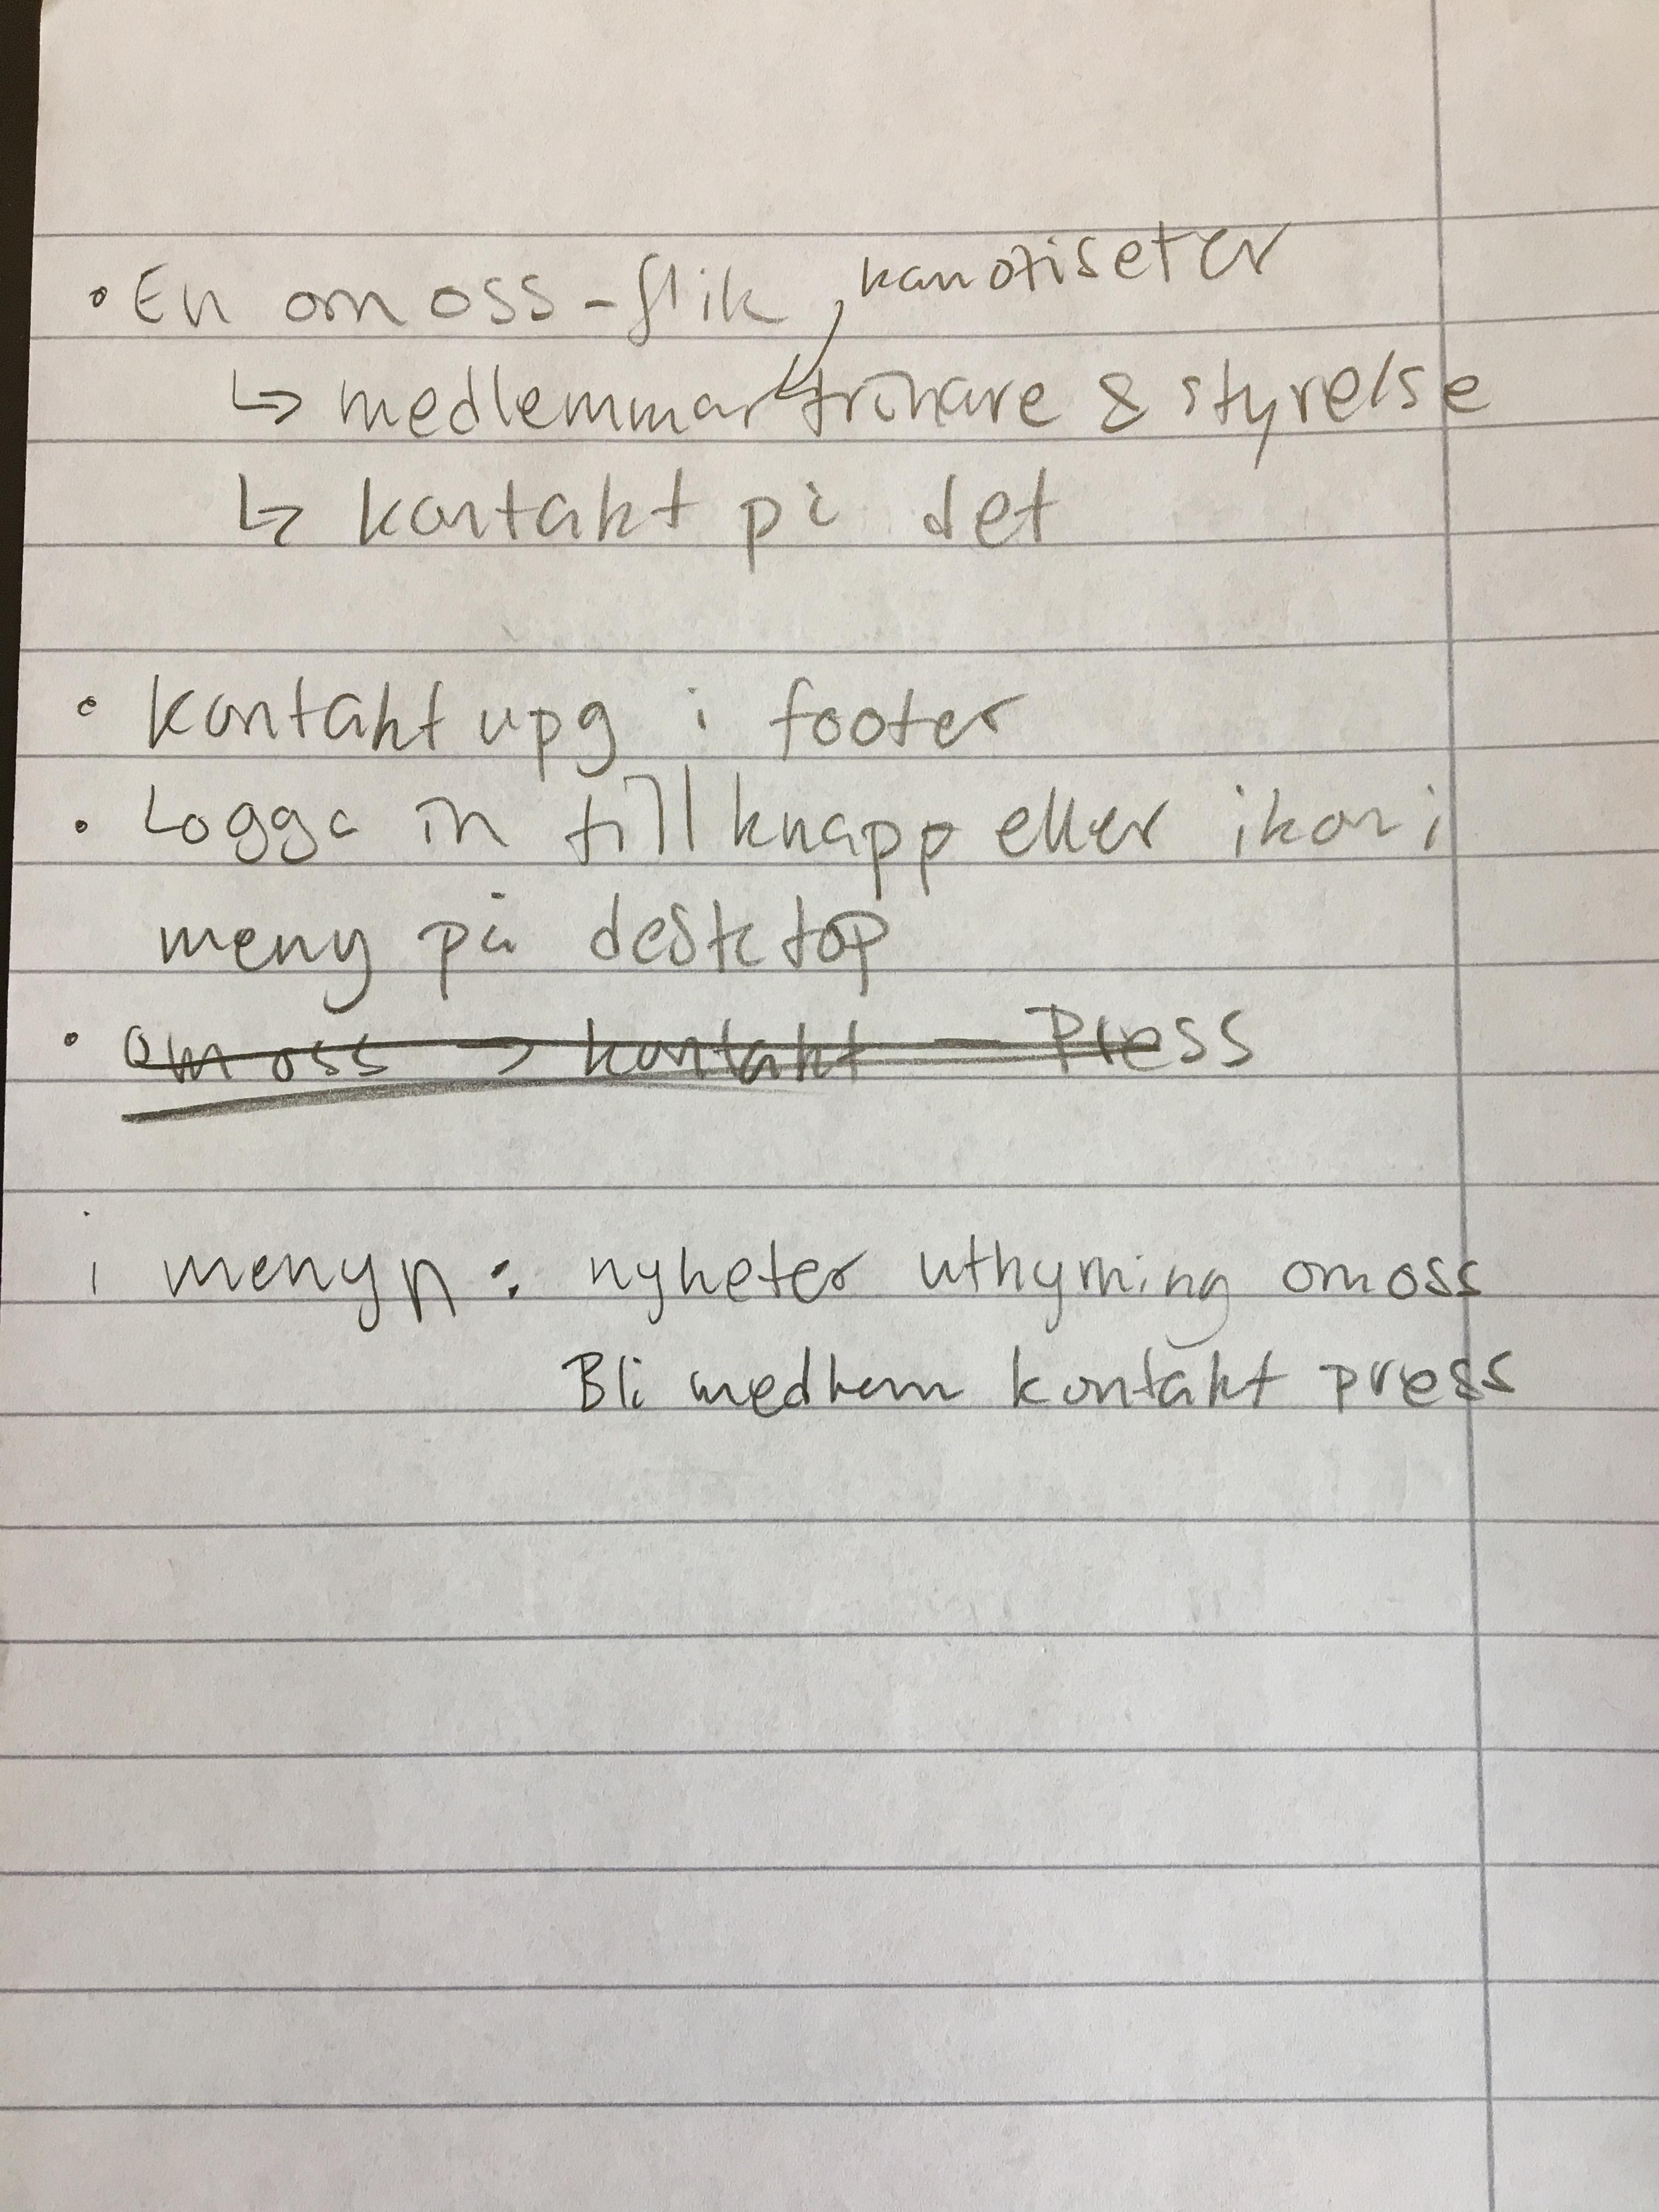 • En om oss-flik , kanotiseter
↳ medlemmar tränare & styrelse
↳ kontakt på det
• Kontaktupg i footer
• Logga in till knapp eller ikon i
meny på desktop
• om oss → kontakt — Press
i menyn : nyheter uthyrning om oss
Bli medlem kontakt press